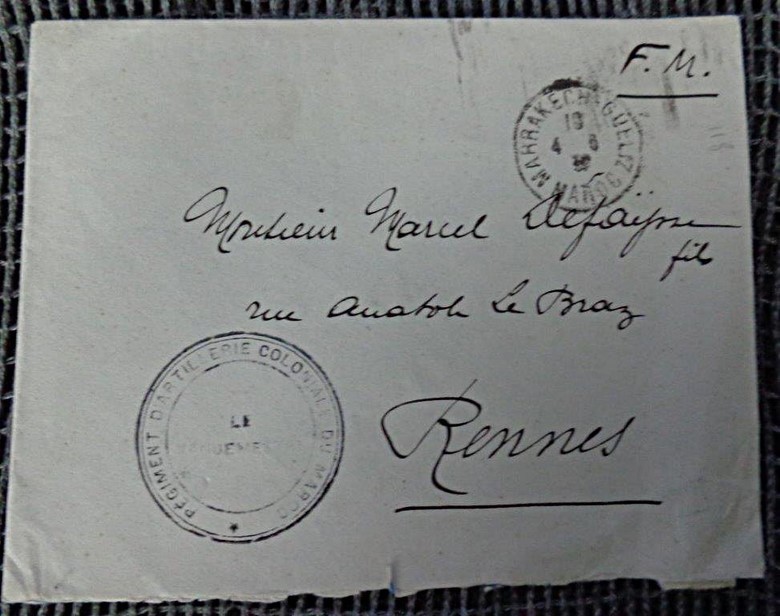 F. M.
MARRAKECH-GUELIZ
MAROC
Monsieur Marcel Defaÿsse
fils
rue Anatole Le Braz
Rennes
RÉGIMENT D'ARTILLERIE COLONIALE DU MAROC
LE